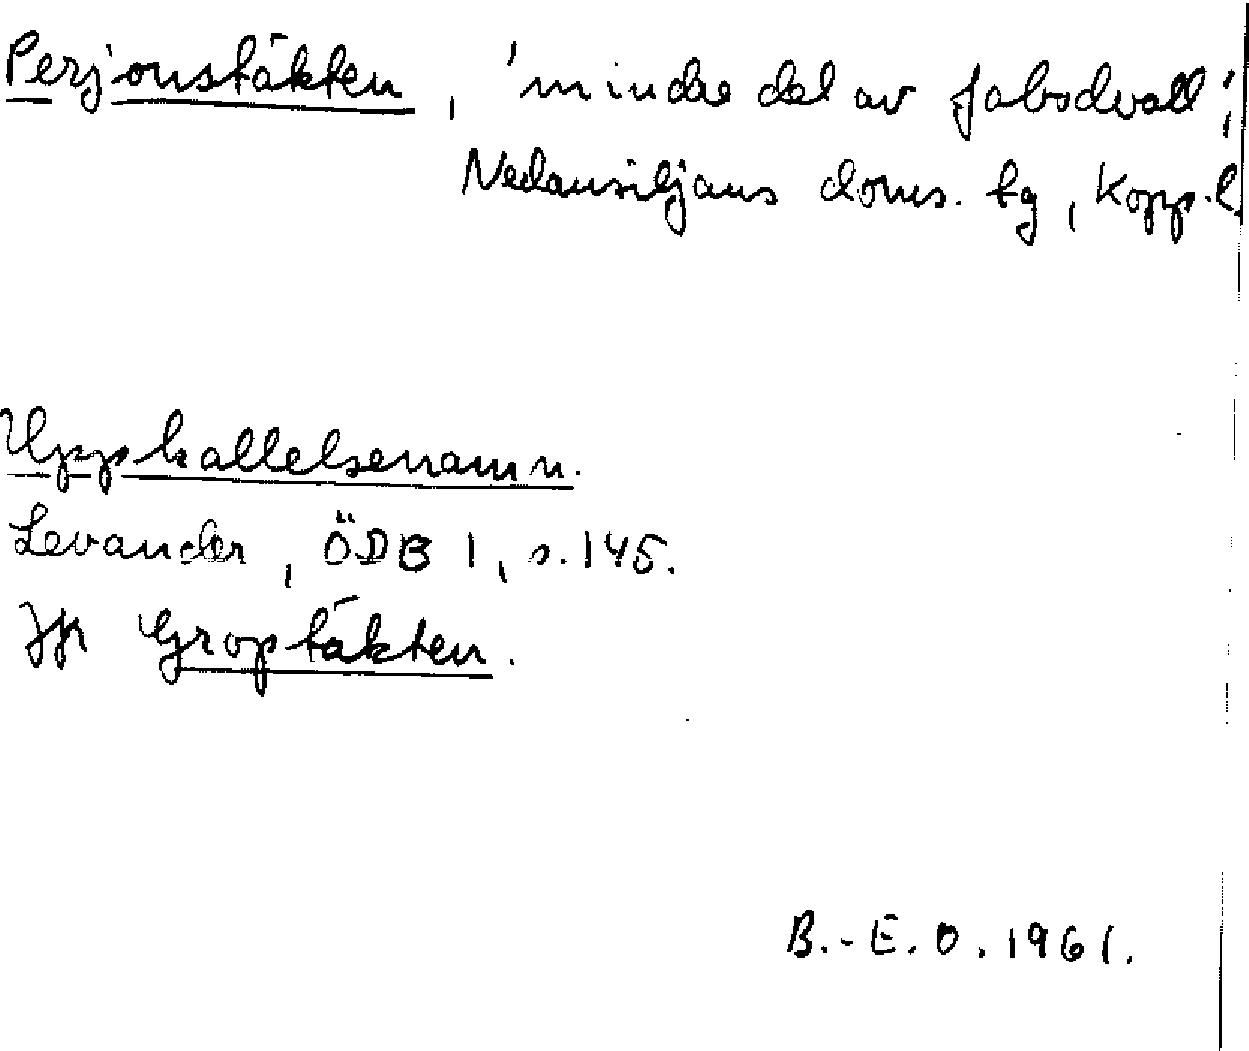 Perjonstäkten, 'mindre del av fäbodvall',
Nedansiljans doms. tg, Kopp. l.
Uppkallelsenamn.
Levander, ÖDB I, s. 145.
Jfr Groptäkten.
B.-E. O. 1961.